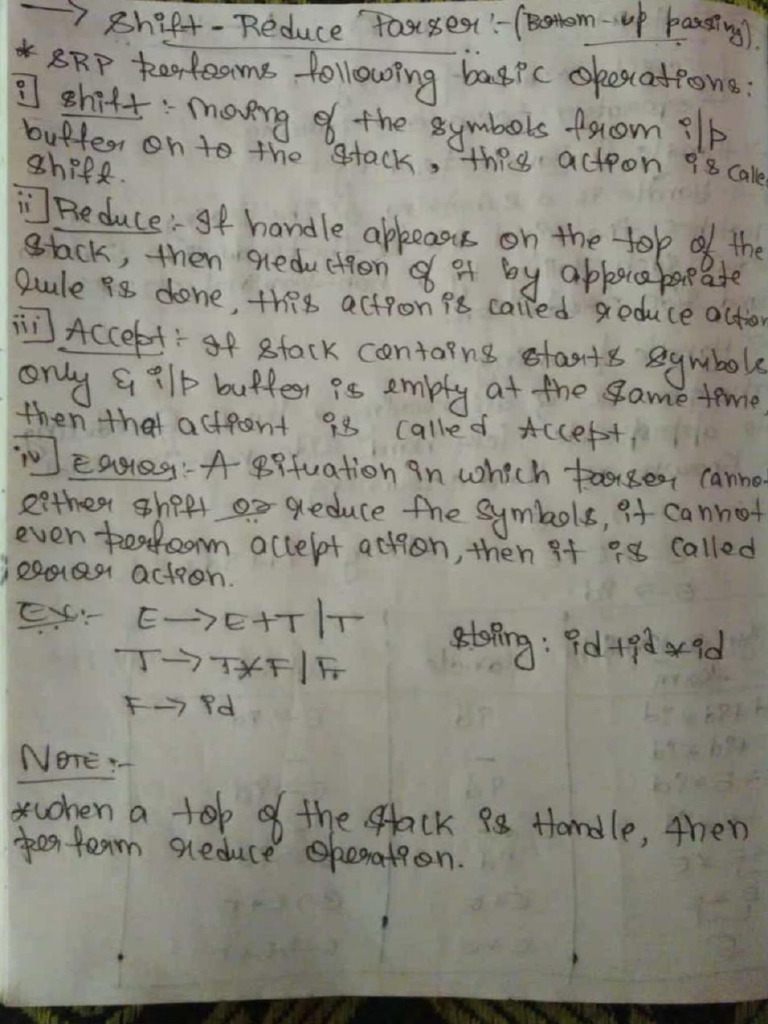 → Shift-Reduce Parser:-(Bottom-up parsing).
* SRP performs following basic operations:
i] Shift:- Moving of the symbols from i/p
buffer on to the stack, this action is calle
shift.
ii] Reduce:- If handle appears on the top of the
stack, then reduction of it by appropriate
rule is done, this action is called reduce action
iii] Accept:- If stack contains starts symbols
only & i/p buffer is empty at the same time,
then that actiont is called Accept,
iv] Error:- A situation in which parser canno
either shift or reduce the symbols, it cannot
even perform accept action, then it is called
error action.
Ex:- E → E+T | T
string: id+id*id
T → T*F | F
F → id
NOTE:-
*when a top of the stack is Handle, then
perform reduce operation.